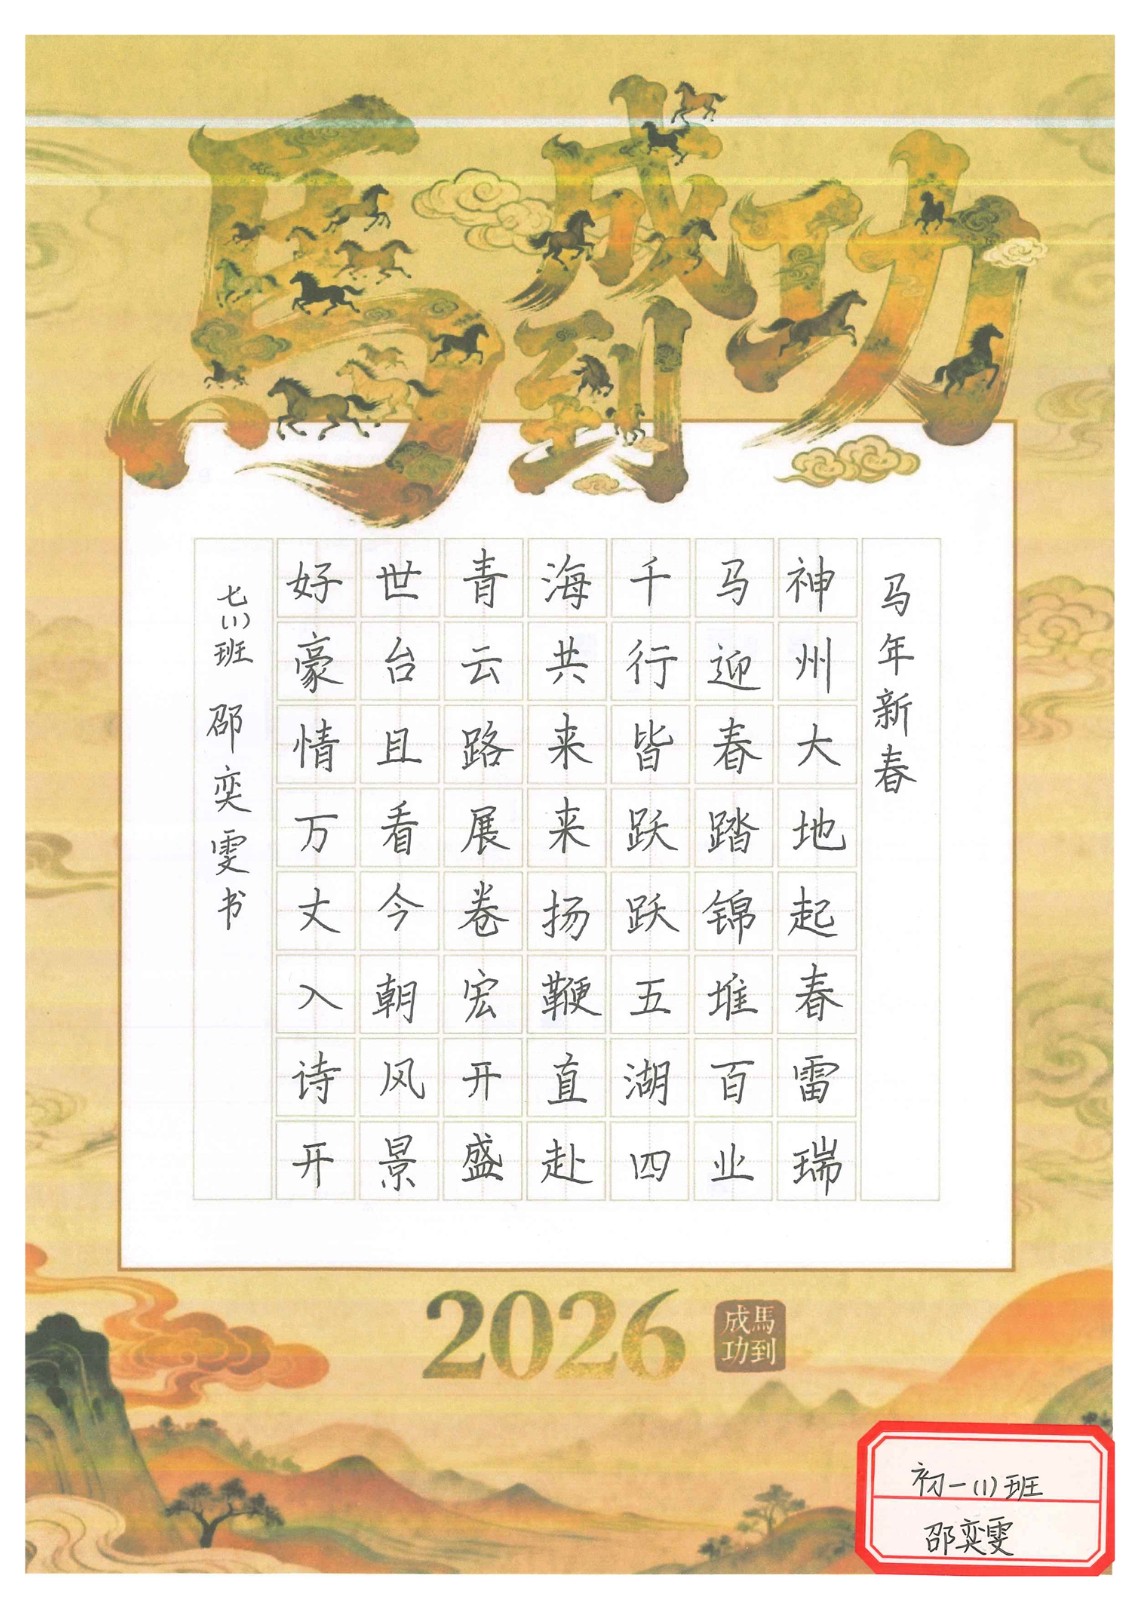 馬到成功
马年新春
神州大地起春雷瑞
马迎春踏锦堆百业
千行皆跃跃五湖四
海共来来扬鞭直赴
青云路展卷宏开盛
世台且看今朝风景
好豪情万丈入诗开
七(1)班 邵奕雯书
2026
馬到
成功
初一(1)班
邵奕雯